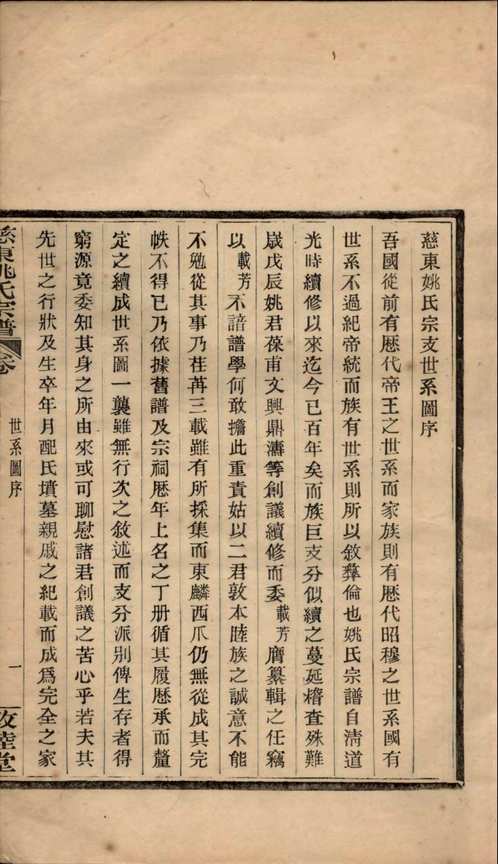 慈東姚氏宗支世系圖序
吾國從前有歷代帝王之世系而家族則有歷代昭穆之世系國有
世系不過紀帝統而族有世系則所以敘彝倫也姚氏宗譜自清道
光時續修以來迄今已百年矣而族巨支分似續之蔓延稽查殊難
歲戊辰姚君葆甫文興鼎濤等創議續修而委載芳膺纂輯之任竊
以載芳不諳譜學何敢擔此重責姑以二君敦本睦族之誠意不能
不勉從其事乃荏苒三載雖有所採集而東麟西爪仍無從成其完
帙不得已乃依據舊譜及宗祠歷年上名之丁册循其履歷承而釐
定之續成世系圖一襲雖無行次之敘述而支分派別俾生存者得
窮源竟委知其身之所由來或可聊慰諸君創議之苦心乎若夫其
先世之行狀及生卒年月配氏墳墓親戚之紀載而成爲完全之家
慈東姚氏宗譜
卷
世系圖序
一
睦堂